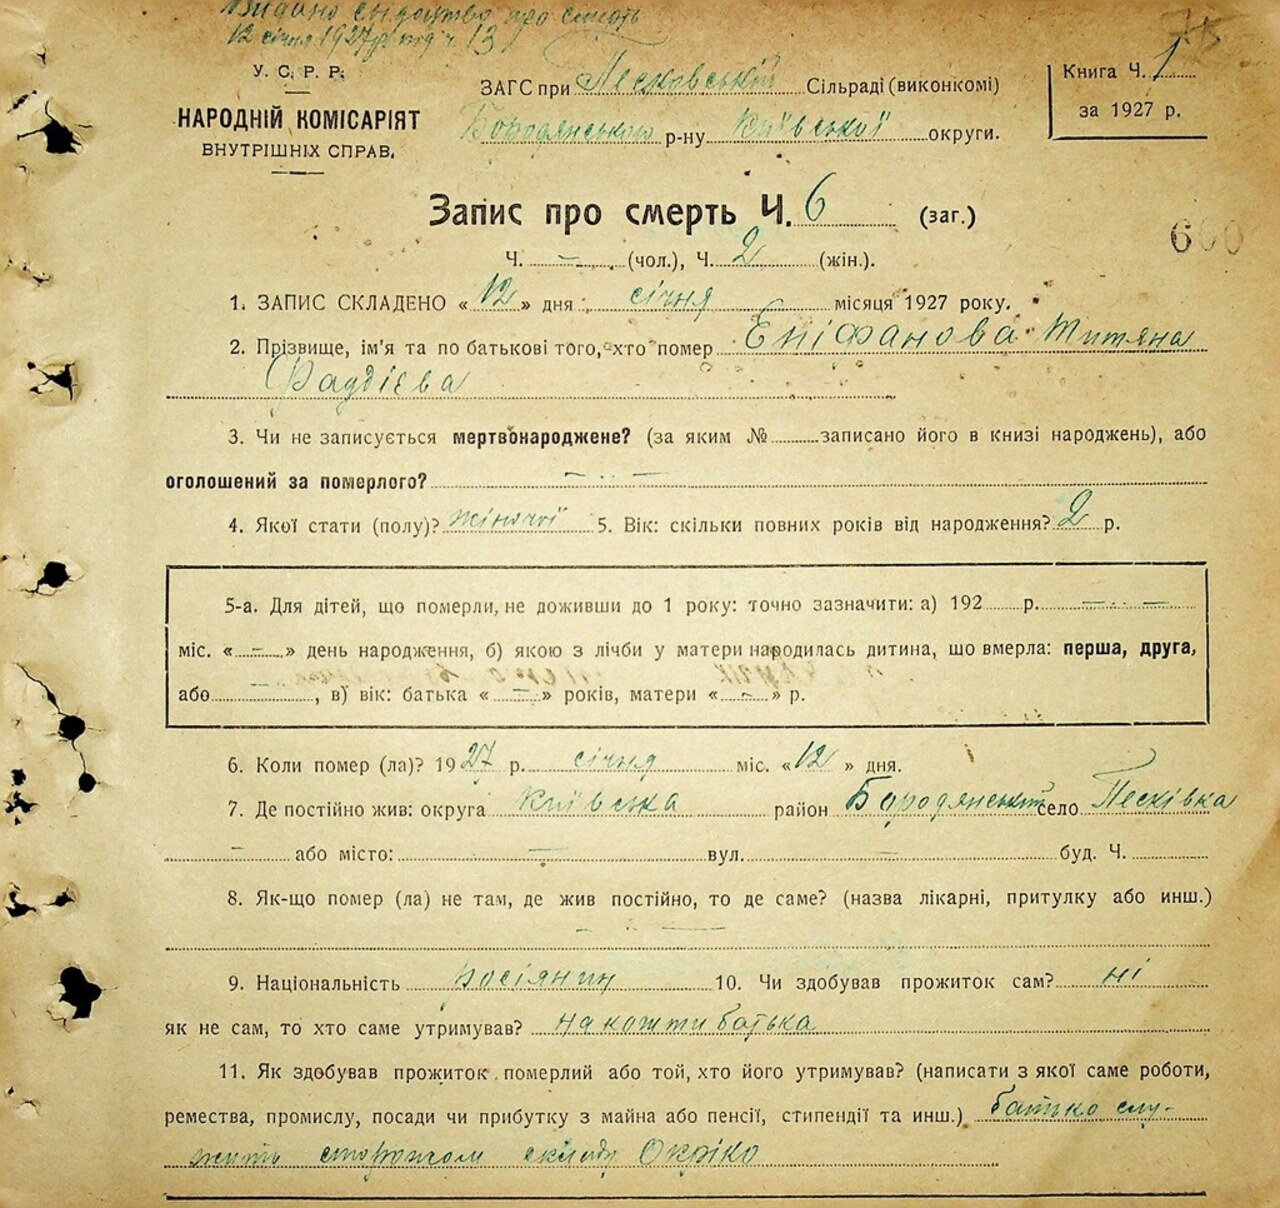 Видано свідоцтво про смерть
12 січня 1927 р. під ч. 13
У. С. Р. Р.
НАРОДНІЙ КОМІСАРІЯТ
ВНУТРІШНІХ СПРАВ.
ЗАГС при Песковській Сільраді (виконкомі)
Бородянського р-ну Київської округи.
Книга Ч. 1
за 1927 р.
Запис про смерть Ч. 6 (заг.)
600
Ч. – (чол.), Ч. 2 (жін.).
1. ЗАПИС СКЛАДЕНО «12» дня січня місяця 1927 року.
2. Прізвище, ім'я та по батькові того, хто помер Епіфанова Титяна
Фаддієва
3. Чи не записується мертвонароджене? (за яким №..........записано його в книзі народжень), або
оголошений за померлого? – –
4. Якої стати (полу)? жіночої 5. Вік: скільки повних років від народження? 2 р.
5-а. Для дітей, що померли, не доживши до 1 року: точно зазначити: а) 192......р. – –
міс. « – » день народження, б) якою з лічби у матери народилась дитина, що вмерла: перша, друга,
або – , в) вік: батька « – » років, матери « – » р.
6. Коли помер (ла)? 1927 р. січня міс. «12» дня.
7. Де постійно жив: округа Київська район Бородянський село Песківка
– або місто: – вул. – буд. Ч.
8. Як-що помер (ла) не там, де жив постійно, то де саме? (назва лікарні, притулку або инш.)
– –
9. Національність Росіянин 10. Чи здобував прожиток сам? ні
як не сам, то хто саме утримував? на кошти батька
11. Як здобував прожиток померлий або той, хто його утримував? (написати з якої саме роботи,
ремества, промислу, посади чи прибутку з майна або пенсії, стипендії та инш.) батько слу-
жить сторожом складу Окріко